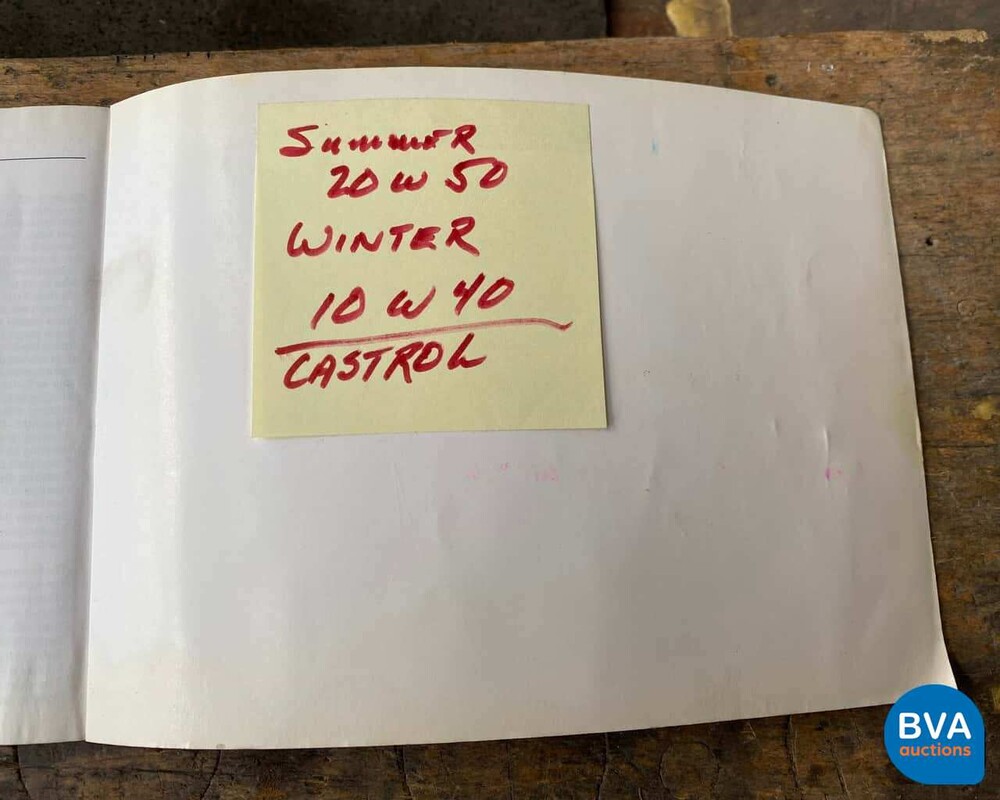 SummER
20 W 50
WINTER
10 W 40
CASTROL
BVA
auctions